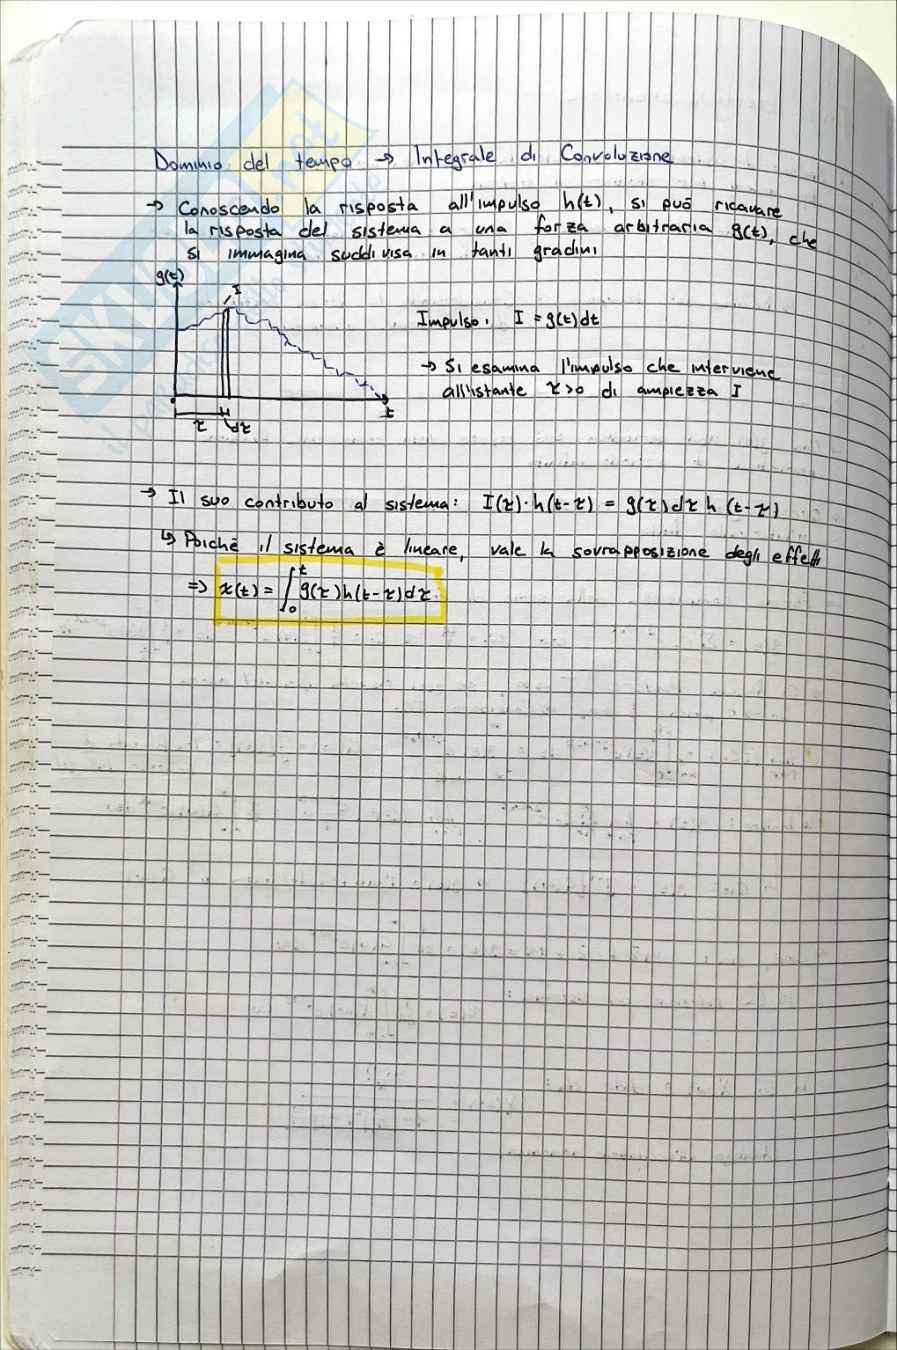 Dominio del tempo → Integrale di Convoluzione
→ Conoscendo la risposta all'impulso h(t), si può ricavare
la risposta del sistema a una forza arbitraria g(t), che
si immagina suddivisa in tanti gradini
g(t)
I
Impulso: I = g(t)dt
→ Si esamina l'impulso che interviene
all'istante τ>0 di ampiezza I
t
τ dτ
→ Il suo contributo al sistema: I(τ)·h(t-τ) = g(τ)dτ h (t-τ)
↳ Poichè il sistema è lineare, vale la sovrapposizione degli effetti
=> x(t) = ∫₀ᵗ g(τ)h(t-τ)dτ
SKUOLA.net